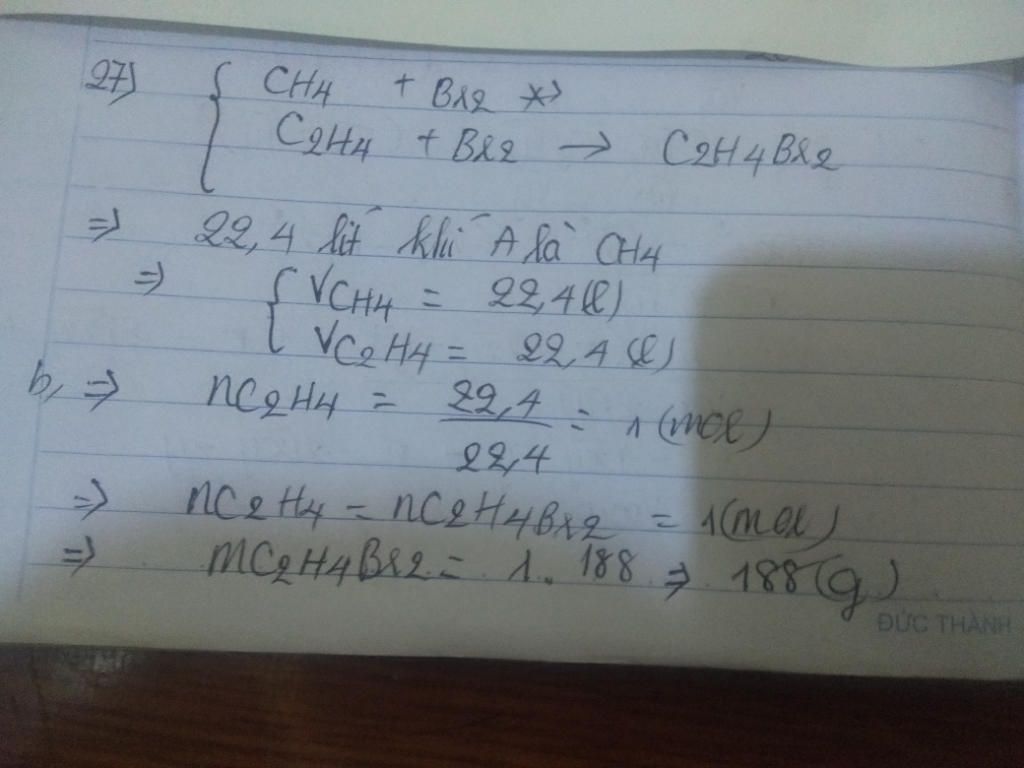 27) { CH4 + Br2 ×>
C2H4 + Br2 → C2H4Br2
=> 22,4 lít khí A là CH4
=> { VCH4 = 22,4(l)
VC2H4 = 22,4 (l)
b, => nC2H4 = 22,4 / 22,4 = 1 (mol)
=> nC2H4 = nC2H4Br2 = 1(mol)
=> mC2H4Br2 = 1. 188 => 188(g)
ĐỨC THÀNH